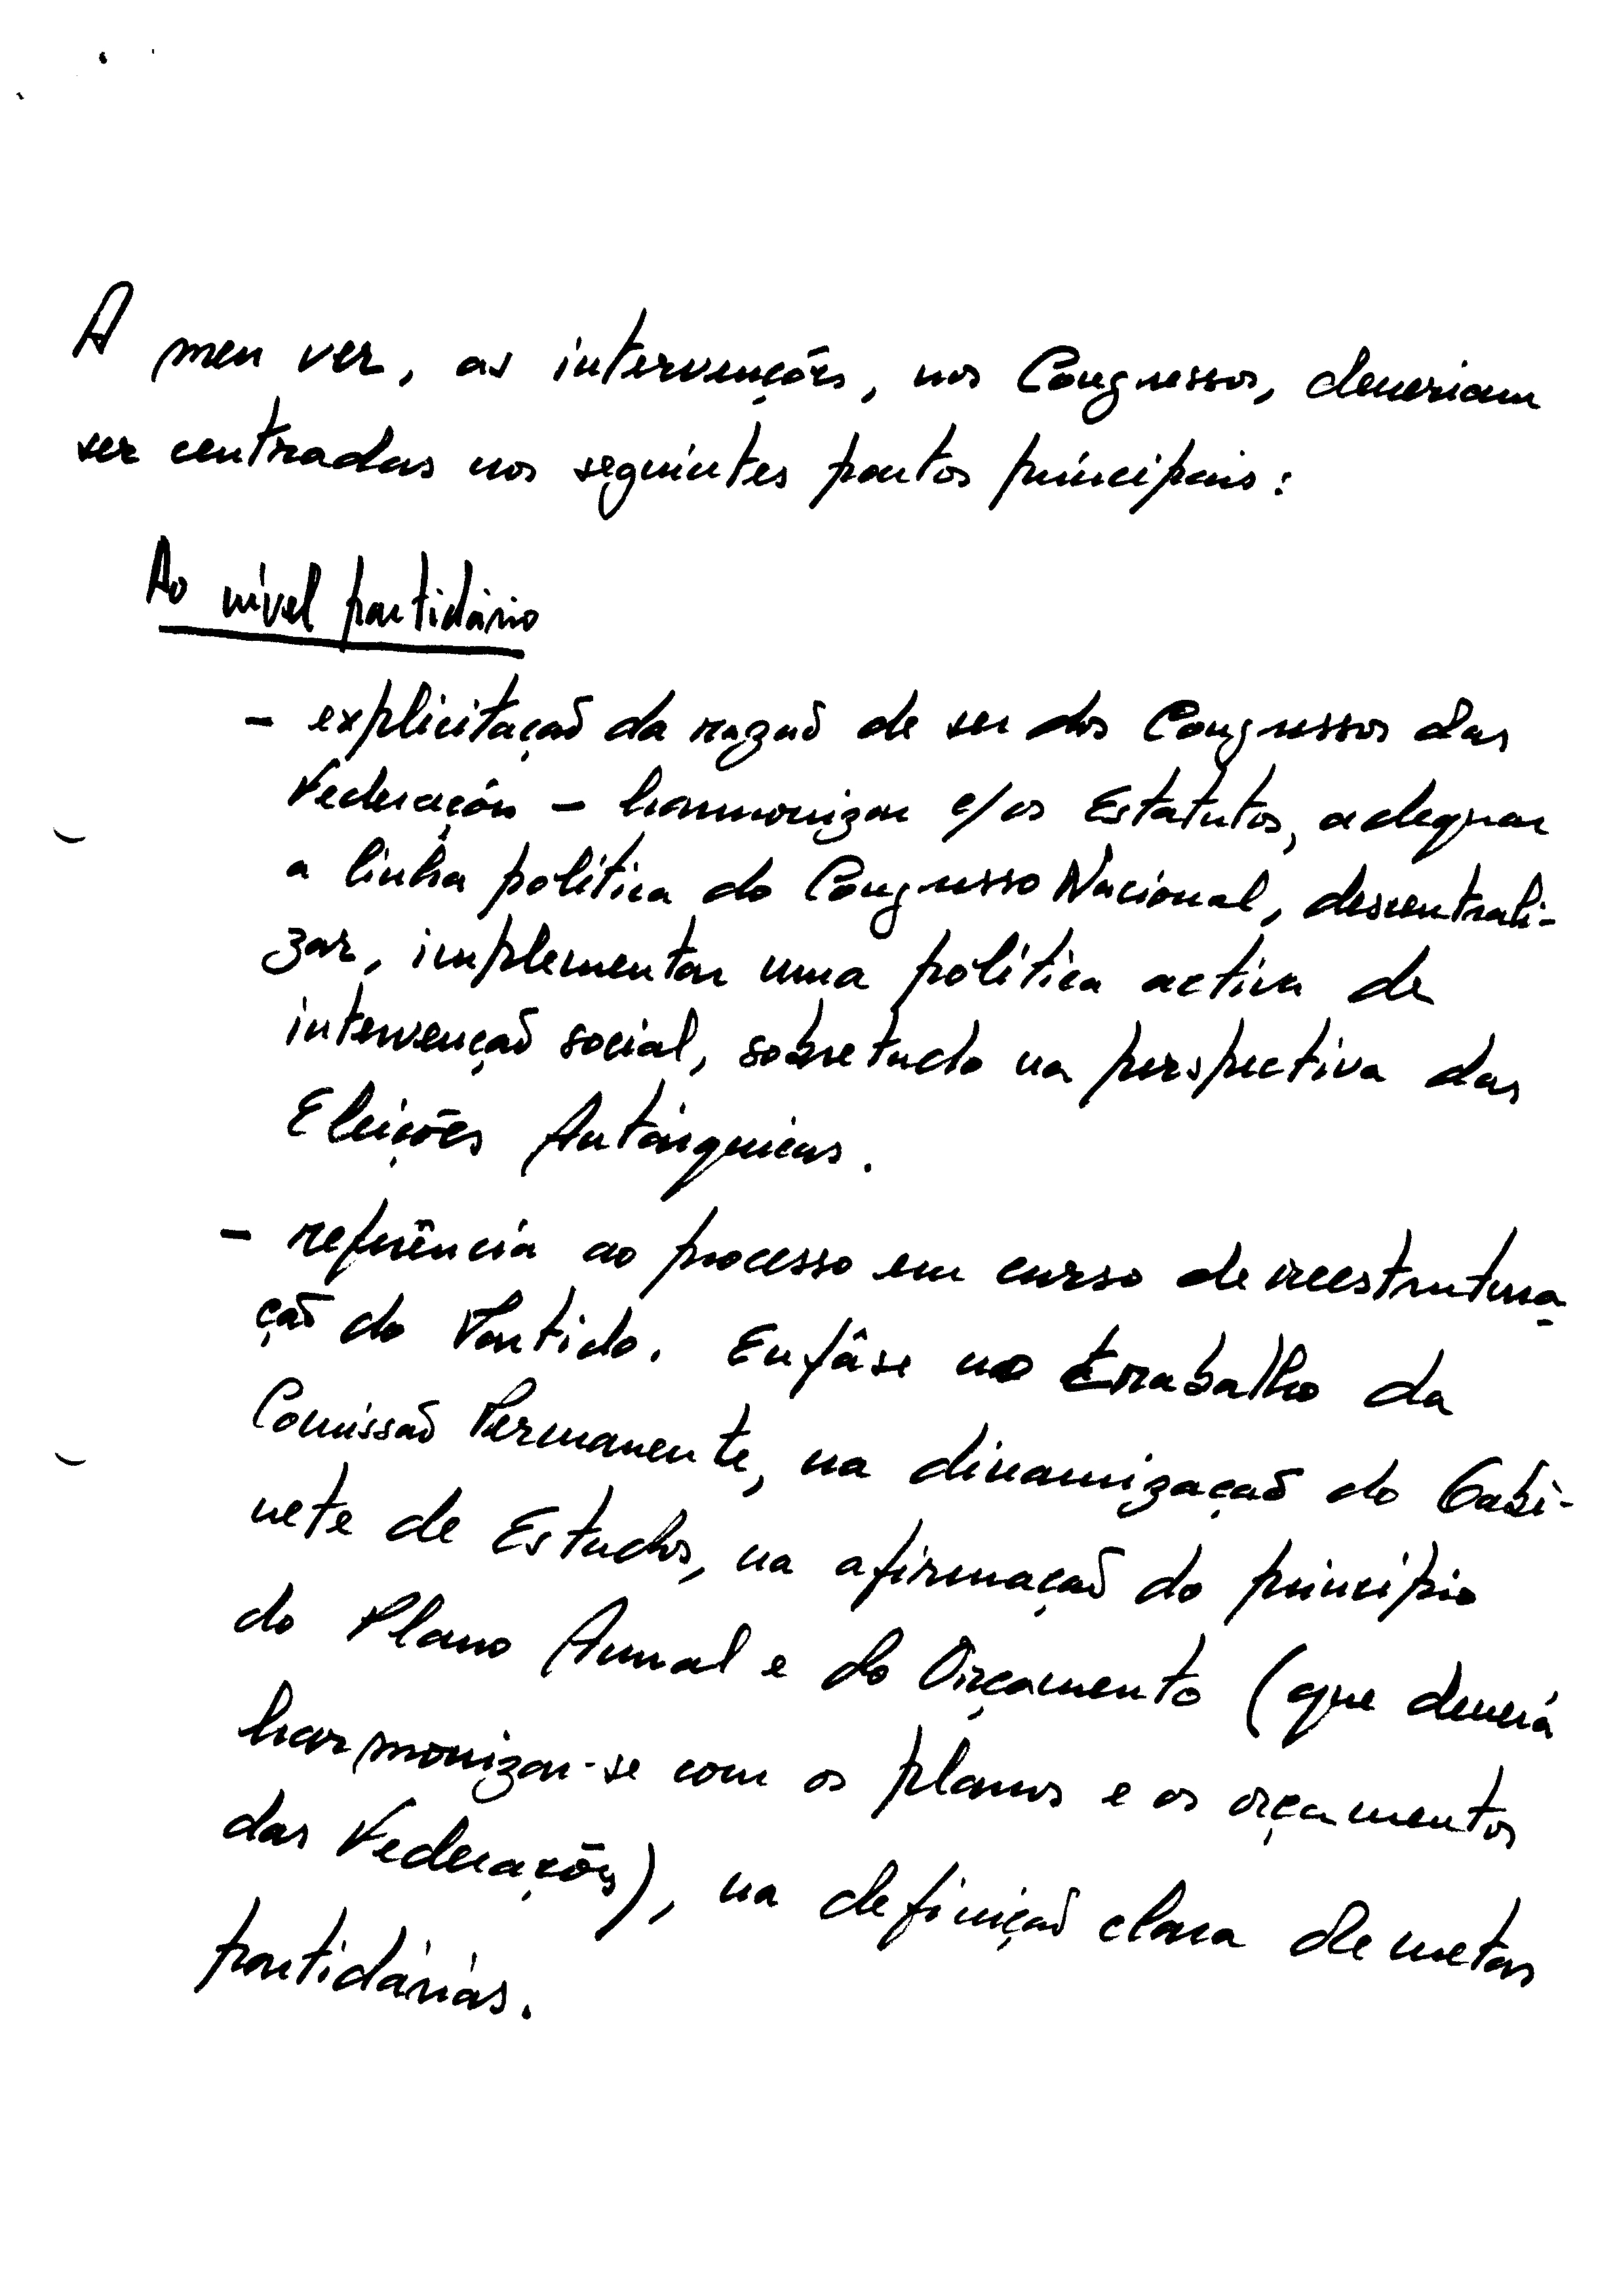 A meu ver, as intervenções, nos Congressos, deveriam
ser centradas nos seguintes pontos principais:
Ao nível partidário
- explicitação da razão de ser dos Congressos das
Federações - harmonizar c/os Estatutos, adequar
a linha política do Congresso Nacional, descentrali-
zar, implementar uma política activa de
intervenção social, sobretudo na perspectiva das
Eleições Autárquicas.
- referência ao processo em curso de reestrutura_
ção do Partido. Enfâse no trabalho da
Comissão Permanente, na dinamização do Gabi-
nete de Estudos, na afirmação do princípio
do Plano Anual e do Orçamento (que deverá
harmonizar-se com os planos e os orçamentos
das Federações), na definição clara de metas
partidárias.